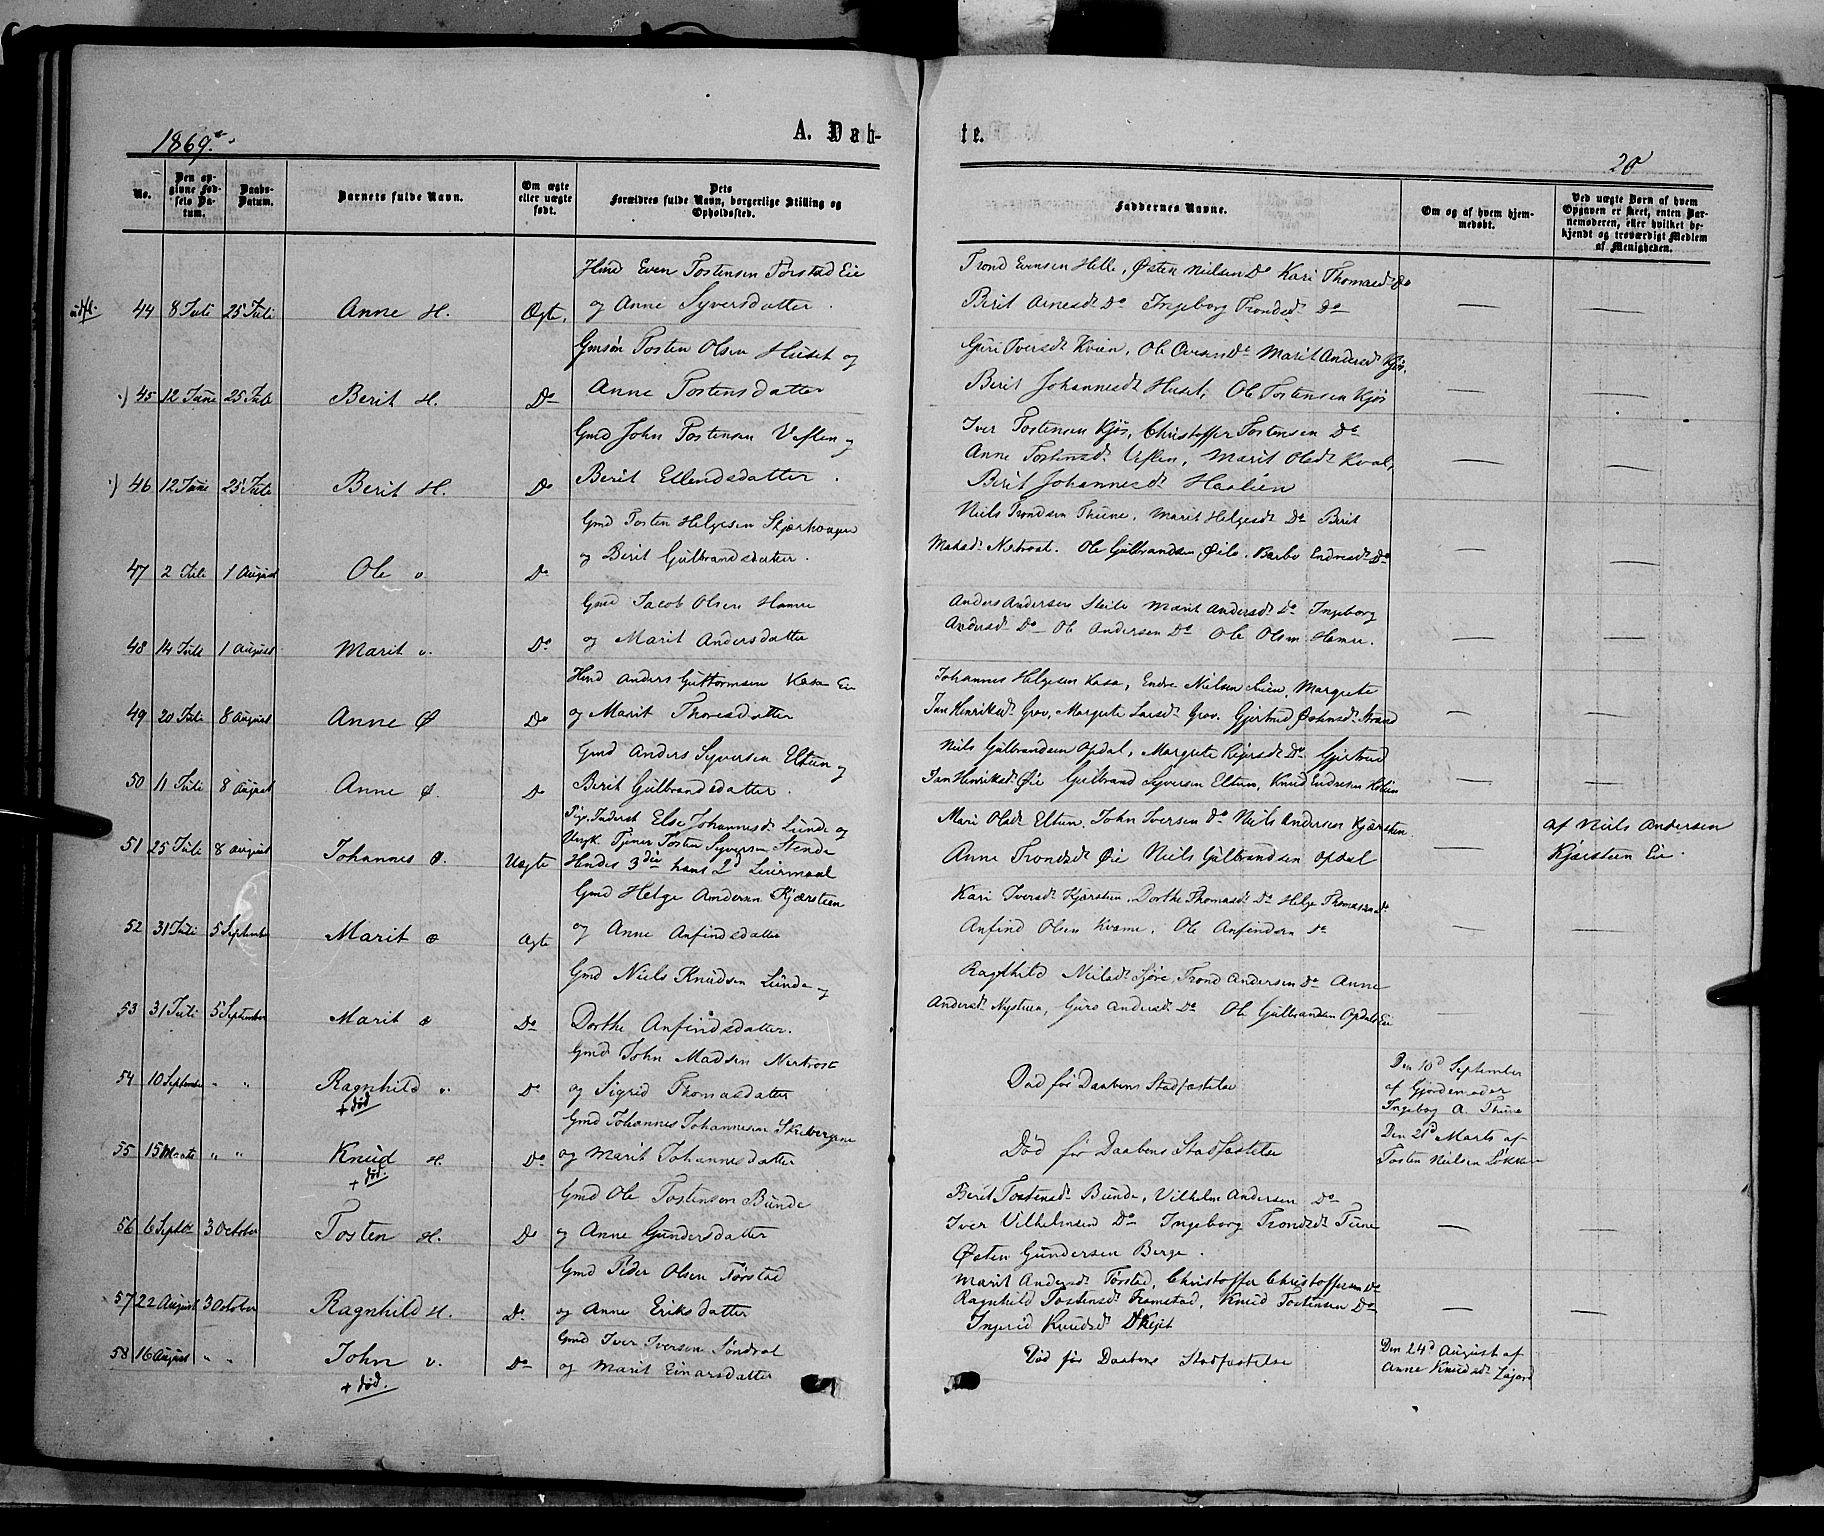 1869.
A. Døb-
te.
20
No.
Den opgivne Fødsels Datum.
Daabs-Datum.
Barnets fulde Navn.
Om ægte eller uægte født.
Dets Forældres fulde Navn, borgerlige Stilling og Opholdssted.
Faddernes Navne.
Om og af hvem hjemmedøbt.
Ved uægte Børn af hvem Opgaven er skeet, enten Barnemoderen, eller hvilket bekjendt og troværdigt Medlem af Menigheden.
Hmd Even Tostensen Førstad Eie
Trond Evensen Helle, Østen Nielsen Do Kari Thomasd. Do
44 8 Juli 25 Juli Anne H. Ægte. og Anne Syversdatter.
Berit Arnesdt Do Ingeborg Trondsdt Do — —
Gmsøn Tosten Olsen Huset og
Guri Iversdt Kvien, Ole Do Marit Andersdt Kjøs
45 12 Juni 25 Juli Berit H. Do Anne Tostensdatter
Berit Johannesdt Huset, Ole Tostensen Kjøs — —
Gmd John Tostensen Veflen og
Iver Tostensen Kjøs, Christoffer Tostensen Do
Anne Tostensdt Veflen, Marit Olsdt Kval, — —
46 12 Juni 25 Juli Berit H. Do Berit Ellendsdatter.
Berit Johannesdt Haalien
Gmd Tosten Helgesen Skjærhaugen
Niels Trondsen Thune, Marit Helgesdt Do Berit
og Berit Gulbrandsdatter.
Nertrost. Ole Gulbrandsen Øilo. Barbo Endresdt Do —
47 2 Juli 1 August Ole v. Do —
Gmd Jacob Olsen Hamre
Anders Andersen Steile Marit Andersdt Do Ingeborg
Andersdt Do Ole Andersen Do Ole Olsen Hamre. — —
48 14 Juli 1 August Marit v. Do og Marit Andersdatter
Hmd Anders Guttormsen Kasa Eie
Johannes Helgesen Kasa, Endre Nielsen Lien, Margrete
49 20 Juli 8 August Anne Ø Do og Marit Thoresdatter
Jan Henriksdt Grov, Margrete Larsdt Grov. Gjertrud Strand — —
Gmd Anders Syversen Eltun og
Niels Gulbrandsen Opdal, Margrete Do Gjertrud
50 11 Juli 8 August Anne Ø. Do Berit Gulbrandsdatter.
Jan Henriksdt Øie Gulbrand Syversen Eltun, Knud Endresen — —
Pige Inderst Else Johannesdt Lunde og
Ungk. Tjener Tosten Syversen Stende
Mari Olsdt Eltun. John Iversen Do Niels Andersen Kjærsten.
af Niels Andersen
51 25 Juli 8 August Johannes Ø. Uægte Hendes 3die hans 2d Leiermaal
Anne Trondsdt Øie Niels Gulbrandsen Opdal — Kjærsteen Eie.
Gmd Helge Andersen Kjærsteen
Kari Iversdt Kjærsten, Dorthe Thomasdt Do Helge Thomassen Do
52 31 Juli 5 September Marit ø Ægte og Anne Anfindsdatter
Anfind Olsen Kvame. Ole Anfindsen Do — —
Gmd Niels Knudsen Lunde og
Ragnhild Nielsdt Trond Andersen Do Anne
53 31 Juli 5 September Marit ø Do Dorthe Anfindsdatter.
Andersdt Nysteen, Guro Andersdt Do Ole Gulbrandsen Opdal Eie — —
Gmd John Madsen Nertrost
54 10 September " " Ragnhild v. Do og Sigrid Thomasdatter
+ død
Død før Daabens Stadfæstelse
Den 10d September
af Gjordemoder
Ingeborg A. Thune
Gmd Johannes Johannesen Skrebergene
55 15 Marts " " Knud H. Do og Marit Johannesdatter
+ død.
Død før Daabens Stadfæstelse
Den 21d Marts af
Tosten Nielsen Løkken
Gmd Ole Tostensen Bunde
Berit Tostensdt Bunde, Vilhelm Andersen Do
56 6 Septbr 3 October Tosten H. Do og Anne Gundersdatter
Iver Vilhelmsen Do Ingeborg Trondsdt Tune — —
Østen Gundersen Berge.
Gmd Peder Olsen Førstad
Marit Andersdt Førstad, Christoffer Christoffersen Do
57 22 August 3 October Ragnhild H. Do og Anne Eriksdatter
Ragnhild Tostensdt Framstad, Knud Tostensen Do — —
Ingerid Knudsdt
Gmd Iver Iversen Søndrol
58 16 August " " John v. Do og Marit Einarsdatter
+ død.
Død før Daabens Stadfæstelse
Den 24d August af
Anne Knudsdt